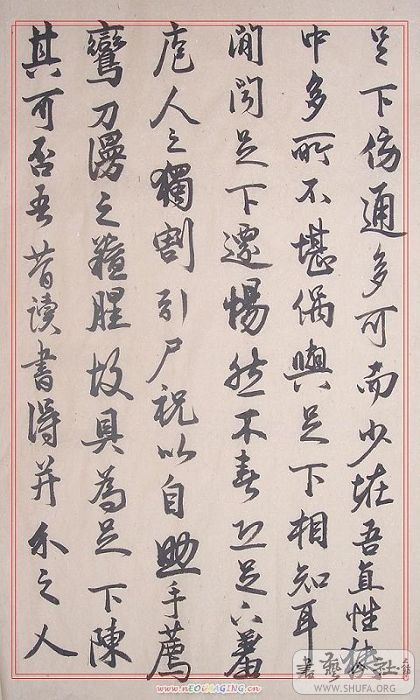 足下傍通多可而少怪吾直性狹
中多所不堪偶與足下相知耳
間聞足下遷惕然不喜恐足下羞
庖人之獨割引尸祝以自助手薦
鸞刀漫之羶腥故具為足下陳
其可否吾昔讀書得并介之人
www.nEO-iMAGING.cn
WWW.SHUFA.ORG